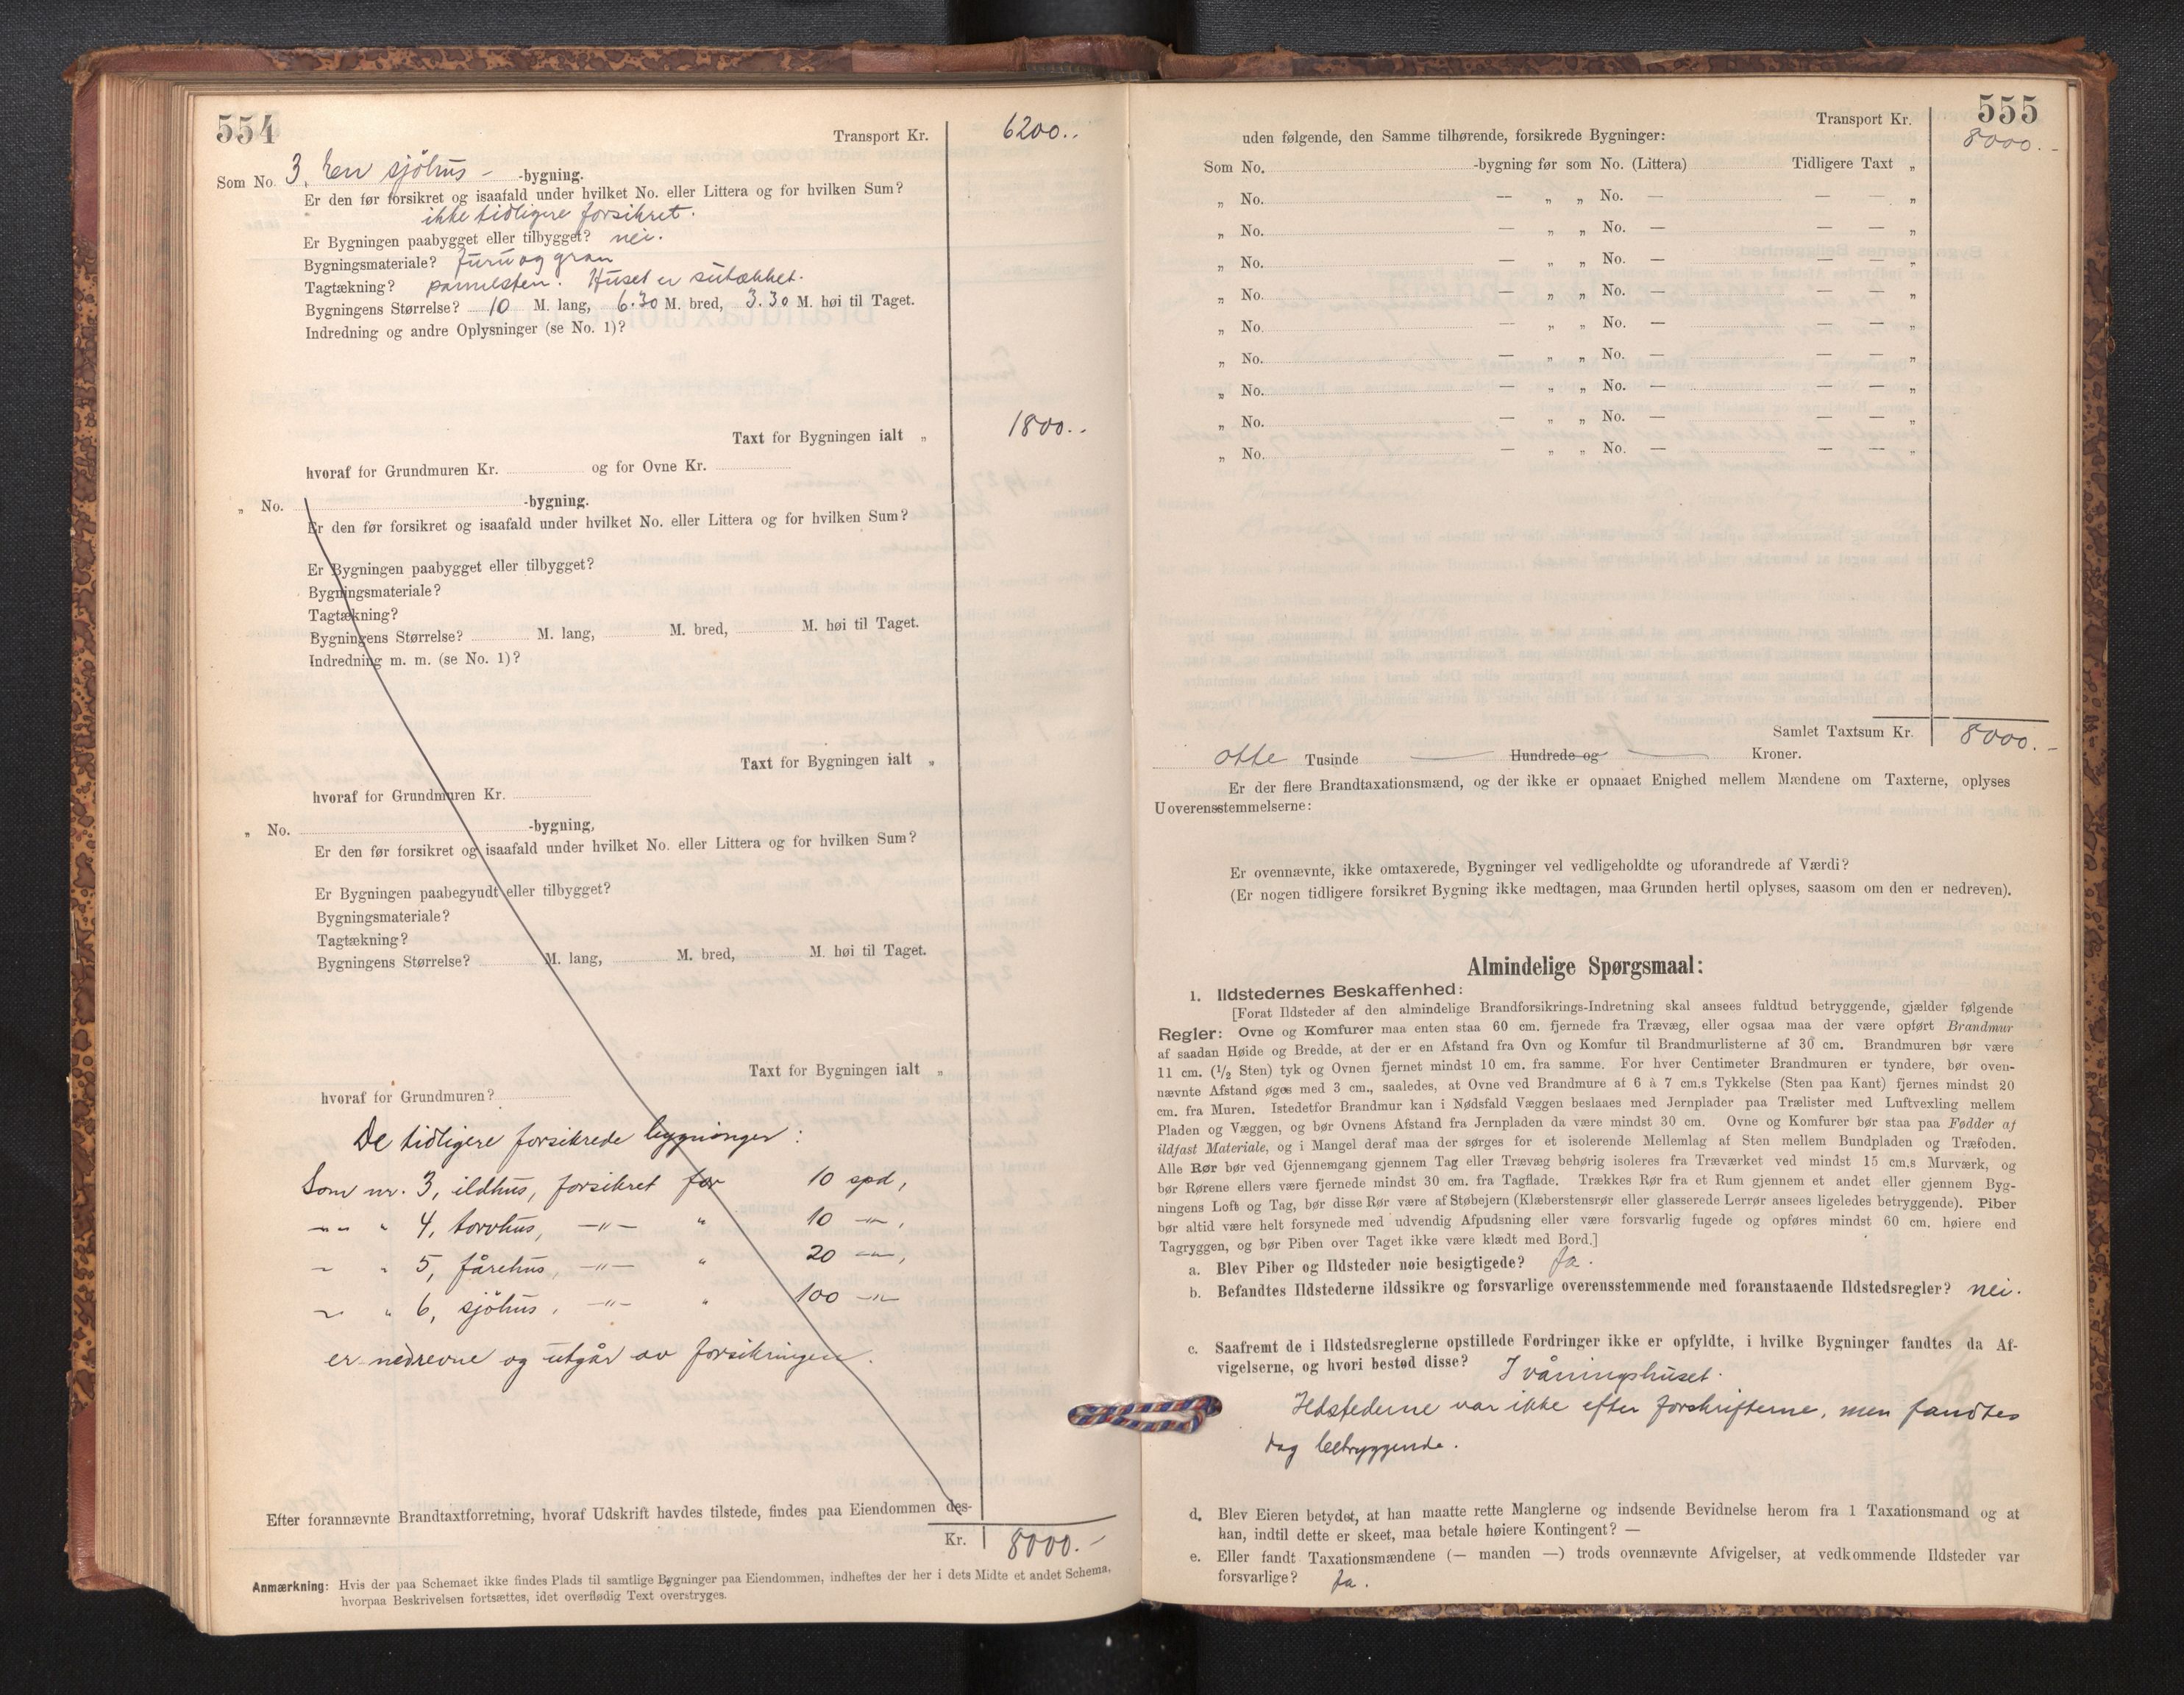 554
Transport Kr. 6200..
Som No. 3. En sjöhus - -bygning.
Er den før forsikret og isaafald under hvilket No. eller Littera og for hvilken Sum?
ikke tidligere forsikret.
Er Bygningen paabygget eller tilbygget? nei.
Bygningsmateriale? furu og gran
Tagtækning? pannesten. Huset er sutækket.
Bygningens Størrelse? 10 M. lang, 6.30 M. bred, 3.30 M. høi til Taget.
Indredning og andre Oplysninger (se No. 1)?
Taxt for Bygningen ialt „ 1800..
hvoraf for Grundmuren Kr. og for Ovne Kr.
„ No. -bygning.
Er den før forsikret og isaafald under hvilket No. eller Littera og for hvilken Sum?
Er Bygningen paabygget eller tilbygget?
Bygningsmateriale?
Tagtækning?
Bygningens Størrelse? M. lang, M. bred, M. høi til Taget.
Indredning m. m. (se No. 1)?
Taxt for Bygningen ialt „
hvoraf for Grundmuren Kr.
„ No. -bygning,
Er den før forsikret og isaafald under hvilket No. eller Littera og for hvilken Sum?
Er Bygningen paabegyndt eller tilbygget?
Bygningsmateriale?
Tagtækning?
Bygningens Størrelse? M. lang, M. bred, M. høi til Taget.
Taxt for Bygningen ialt „
hvoraf for Grundmuren?
De tidligere forsikrede bygninger:
Som nr. 3, ildhus, forsikret for 10 spd,
—"— " 4, torvhus, —"— " 10 —"—,
— " 5, fårehus, —"— " 20 —"—,
— " 6, sjöhus, —"— " 100 —"—
er nedrevne og utgår av forsikringen.
Efter forannævnte Brandtaxtforretning, hvoraf Udskrift havdes tilstede, findes paa Eiendommen des-
Kr. 8000.-
Anmærkning: Hvis der paa Schemaet ikke findes Plads til samtlige Bygninger paa Eiendommen, indheftes der her i dets Midte et andet Schema,
hvorpaa Beskrivelsen fortsættes, idet overflødig Text overstryges.
555
Transport Kr. 8000.-
uden følgende, den Samme tilhørende, forsikrede Bygninger:
Som No. -bygning før som No. (Littera) Tidligere Taxt „
„ No. — „ „ No. — — — „
„ No. — „ „ No. — — — „
„ No. — „ „ No. — — — „
„ No. — „ „ No. — — — „
„ No. — „ „ No. — — — „
„ No. — „ „ No. — — — „
„ No. — „ „ No. — — — „
„ No. — „ „ No. — — — „
„ No. — „ „ No. — — — „
Samlet Taxtsum Kr. 8000.-
otte Tusinde — Hundrede og — Kroner.
Er der flere Brandtaxationsmænd, og der ikke er opnaaet Enighed mellem Mændene om Taxterne, oplyses
Uoverensstemmelserne:
Er ovennævnte, ikke omtaxerede, Bygninger vel vedligeholdte og uforandrede af Værdi?
(Er nogen tidligere forsikret Bygning ikke medtagen, maa Grunden hertil oplyses, saasom om den er nedreven).
Almindelige Spørgsmaal:
1. Ildstedernes Beskaffenhed:
[Forat Ildsteder af den almindelige Brandforsikrings-Indretning skal ansees fuldtud betryggende, gjælder følgende
Regler: Ovne og Komfurer maa enten staa 60 cm. fjernede fra Trævæg, eller ogsaa maa der være opført Brandmur
af saadan Høide og Bredde, at der er en Afstand fra Ovn og Komfur til Brandmurlisterne af 30 cm. Brandmuren bør være
11 cm. (1/2 Sten) tyk og Ovnen fjernet mindst 10 cm. fra samme. For hver Centimeter Brandmuren er tyndere, bør oven-
nævnte Afstand øges med 3 cm., saaledes, at Ovne ved Brandmure af 6 à 7 cm.s Tykkelse (Sten paa Kant) fjernes mindst 20
cm. fra Muren. Istedetfor Brandmur kan i Nødsfald Væggen beslaaes med Jernplader paa Trælister med Luftvexling mellem
Pladen og Væggen, og bør Ovnens Afstand fra Jernpladen da være mindst 30 cm. Ovne og Komfurer bør staa paa Fødder af
ildfast Materiale, og i Mangel deraf maa der sørges for et isolerende Mellemlag af Sten mellem Bundpladen og Træfoden.
Alle Rør bør ved Gjennemgang gjennem Tag eller Trævæg behørig isoleres fra Træværket ved mindst 15 cm.s Murværk, og
bør Rørene ellers være fjernede mindst 30 cm. fra Tagflade. Trækkes Rør fra et Rum gjennem et andet eller gjennem Byg-
ningens Loft og Tag, bør disse Rør være af Støbejern (Klæberstensrør eller glasserede Lerrør ansees ligeledes betryggende). Piber
bør altid være helt forsynede med udvendig Afpudsning eller være forsvarlig fugede og opføres mindst 60 cm. høiere end
Tagryggen, og bør Piben over Taget ikke være klædt med Bord.]
a. Blev Piber og Ildsteder nøie besigtigede? Ja.
b. Befandtes Ildstederne ildssikre og forsvarlige overensstemmende med foranstaaende Ildstedsregler? nei.
c. Saafremt de i Ildstedsreglerne opstillede Fordringer ikke er opfyldte, i hvilke Bygninger fandtes da Af-
vigelserne, og hvori bestod disse? I våningshuset.
Ildstederne var ikke efter forskrifterne, men fandtes
dog betryggende.
d. Blev Eieren betydet, at han maatte rette Manglerne og indsende Bevidnelse herom fra 1 Taxationsmand og at
han, indtil dette er skeet, maa betale høiere Kontingent? —
e. Eller fandt Taxationsmændene (— manden —) trods ovennævnte Afvigelser, at vedkommende Ildsteder var
forsvarlige? Ja.